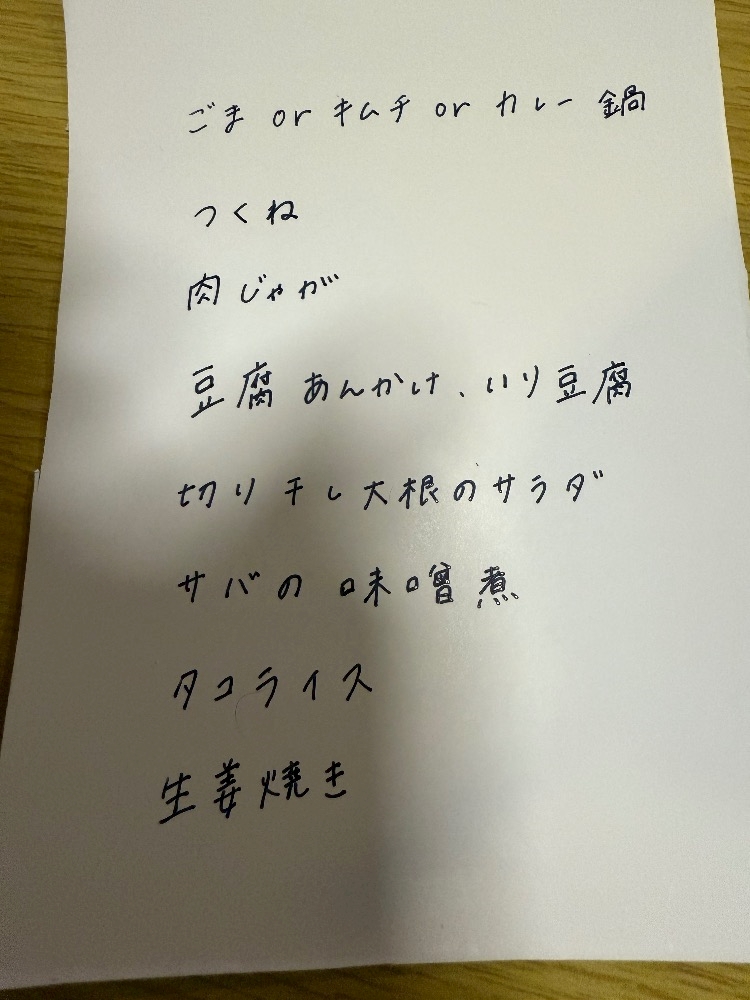 ごま or キムチ or カレー 鍋
つくね
肉じゃが
豆腐 あんかけ、いり豆腐
切り干し大根のサラダ
サバの味噌煮
タコライス
生姜焼き